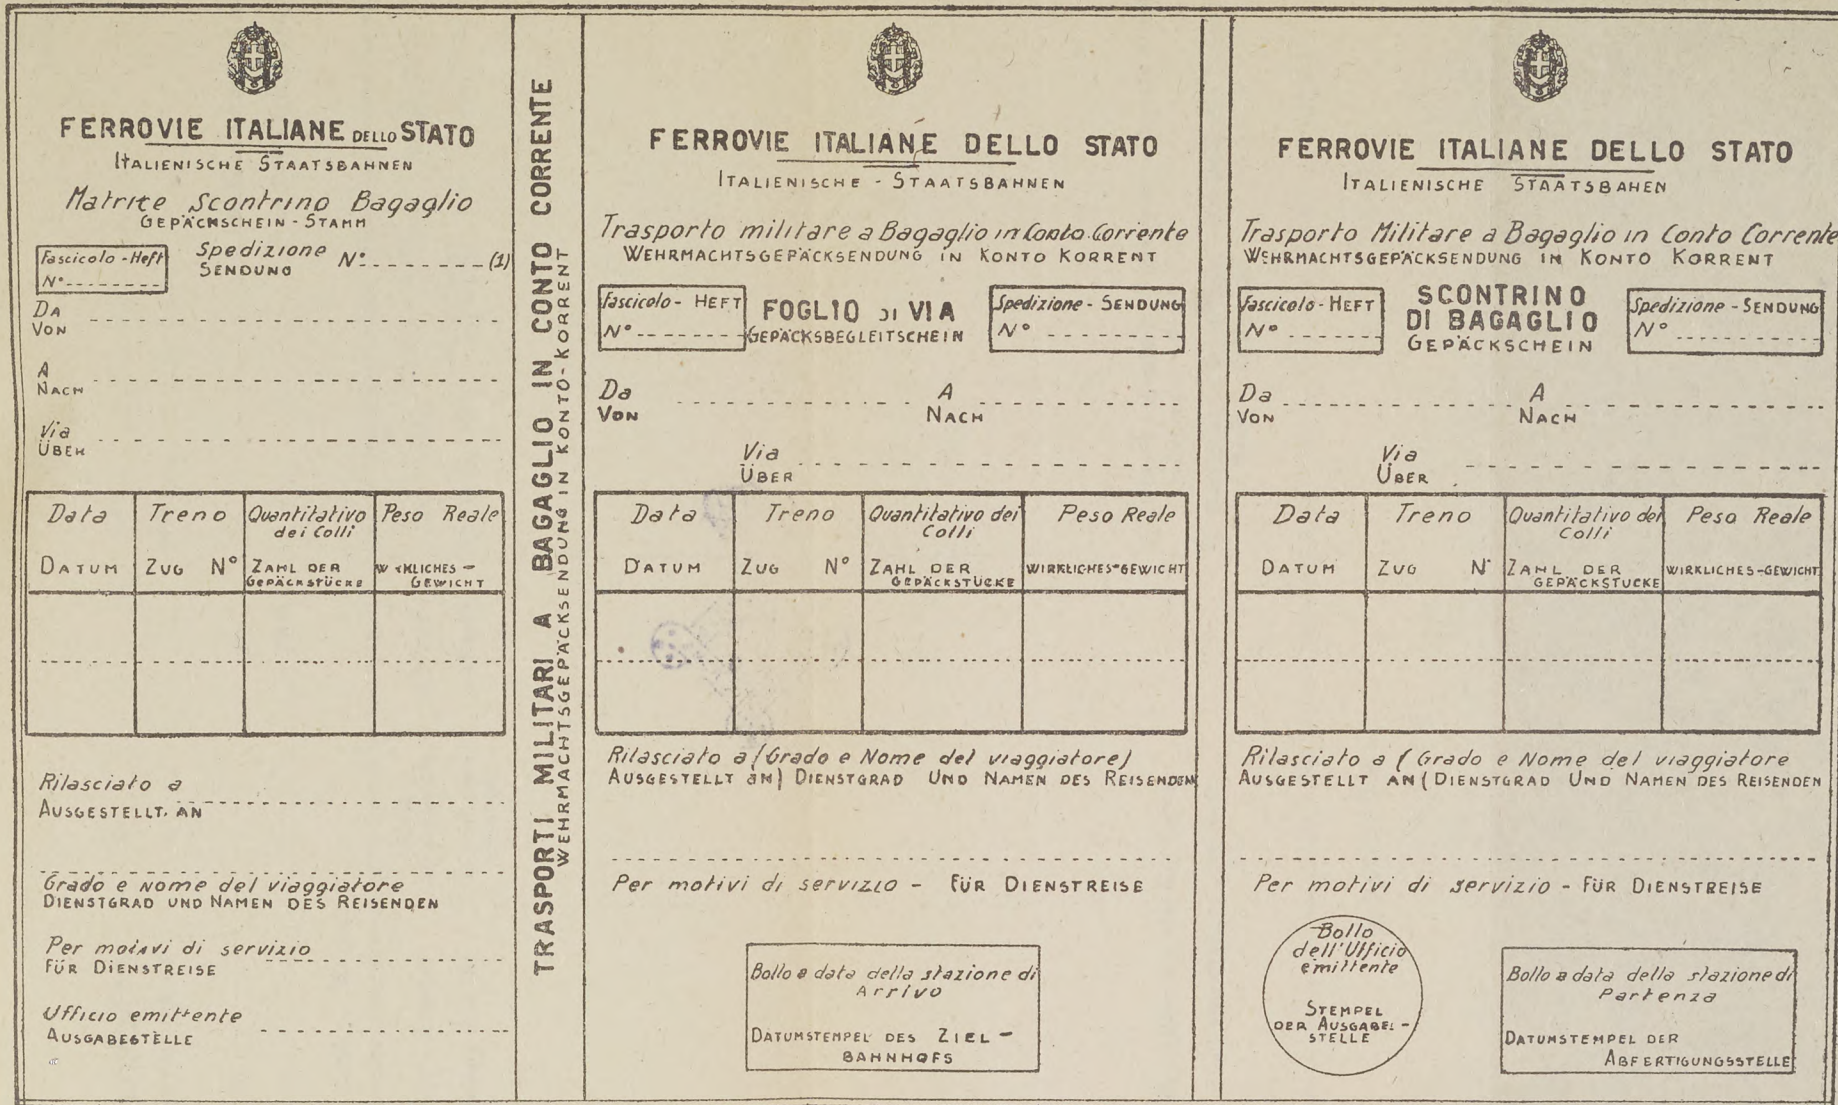 FERROVIE ITALIANE DELLO STATO
ITALIENISCHE STAATSBAHNEN
Matrice Scontrino Bagaglio
GEPÄCKSCHEIN - STAMM
Fascicolo - Heft
N°
Spedizione N° (1)
SENDUNG
DA
VON
A
NACH
Via
ÜBER
Data Treno Quantitativo dei Colli Peso Reale
DATUM ZUG N° ZAHL DER GEPÄCKSTÜCKE WIRKLICHES - GEWICHT
Rilasciato a
AUSGESTELLT. AN
Grado e Nome del viaggiatore
DIENSTGRAD UND NAMEN DES REISENDEN
Per motivi di servizio
FÜR DIENSTREISE
Ufficio emittente
AUSGABESTELLE
TRASPORTI MILITARI A BAGAGLIO IN CONTO CORRENTE
WEHRMACHTSGEPÄCKSENDUNG IN KONTO-KORRENT
FERROVIE ITALIANE DELLO STATO
ITALIENISCHE - STAATSBAHNEN
Trasporto militare a Bagaglio in Conto Corrente
WEHRMACHTSGEPÄCKSENDUNG IN KONTO KORRENT
Fascicolo - HEFT
N°
FOGLIO DI VIA
GEPÄCKSBEGLEITSCHEIN
Spedizione - SENDUNG
N°
Da A
VON NACH
Via
ÜBER
Data Treno Quantitativo dei Colli Peso Reale
DATUM ZUG N° ZAHL DER GEPÄCKSTÜCKE WIRKLICHES-GEWICHT
Rilasciato a (Grado e Nome del viaggiatore)
AUSGESTELLT AN) DIENSTGRAD UND NAMEN DES REISENDEN
Per motivi di servizio - FÜR DIENSTREISE
Bollo e data della stazione di
Arrivo
DATUMSTEMPEL DES ZIEL -
BAHNHOFS
FERROVIE ITALIANE DELLO STATO
ITALIENISCHE STAATSBAHEN
Trasporto Militare a Bagaglio in Conto Corrente
WEHRMACHTSGEPÄCKSENDUNG IN KONTO KORRENT
Fascicolo - HEFT
N°
SCONTRINO
DI BAGAGLIO
GEPÄCKSCHEIN
Spedizione - SENDUNG
N°
Da A
VON NACH
Via
ÜBER
Data Treno Quantitativo dei Colli Peso Reale
DATUM ZUG N° ZAHL DER GEPÄCKSTUCKE WIRKLICHES-GEWICHT
Rilasciato a (Grado e Nome del viaggiatore
AUSGESTELLT AN (DIENSTGRAD UND NAMEN DES REISENDEN
Per motivi di servizio - FÜR DIENSTREISE
Bollo
dell'Ufficio
emittente
STEMPEL
DER AUSGABEL -
STELLE
Bollo e data della stazione di
Partenza
DATUMSTEMPEL DER
ABFERTIGUNGSSTELLE